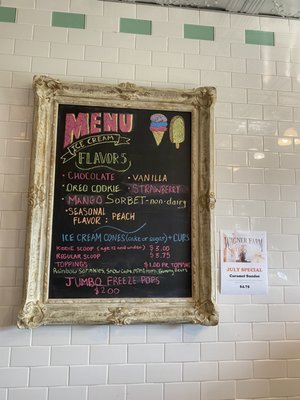 MENU
ICE CREAM
FLAVORS
• CHOCOLATE • VANILLA
• OREO COOKIE • STRAWBERRY
• MANGO SORBET - non-dairy
• SEASONAL
FLAVOR : PEACH
ICE CREAM CONES (cake or sugar) + CUPS
KIDDIE SCOOP (Age 12 and under) $
REGULAR SCOOP $ 5.75
TOPPINGS $1.00 PR. TOPPING
Rainbow Sprinkles, Snow Caps, Mini M+M, Gummy Bears
JUMBO FREEZE POPS
$2.00
FARM
JULY SPECIAL
Caramel Sundae